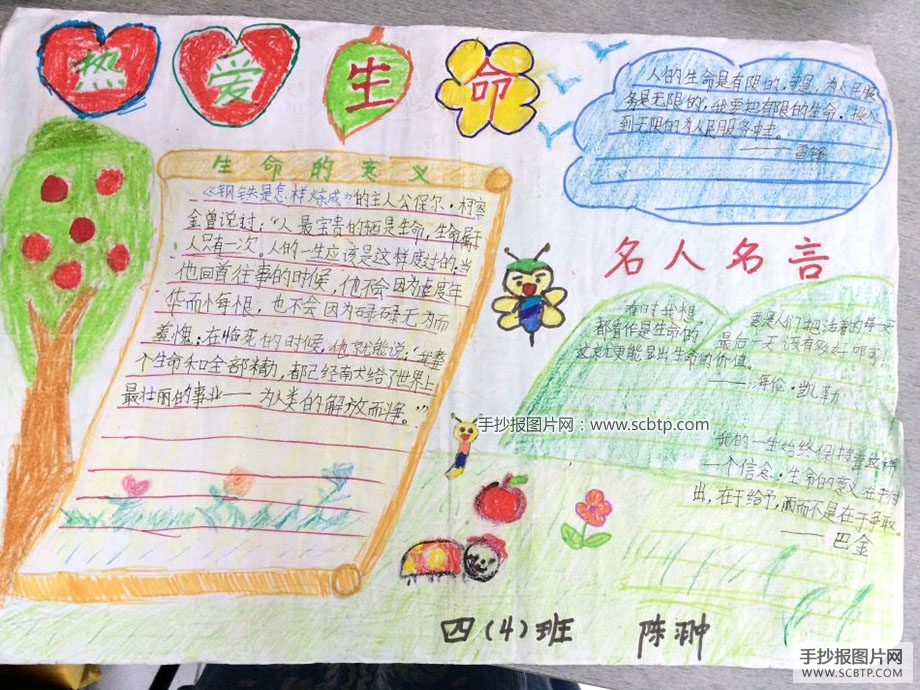 热爱生命
人的生命是有限的,可是,为人民服
务是无限的,我要把有限的生命,投入
到无限的为人民服务中去。
——雷锋
生命的意义
《钢铁是怎样炼成》的主人公保尔·柯察
金曾说过:“人最宝贵的东西是生命,生命属于
人只有一次。人的一生应该是这样度过的:当
他回首往事的时候,他不会因为虚度年
华而悔恨,也不会因为碌碌无为而
羞愧;在临死的时候,他就能说:“我整
个生命和全部精力,都已经献给了世界上
最壮丽的事业——为人类的解放而
名人名言
都看作是生命的
最后一天,该有多好啊!
这就更能显出生命的价值。
——海伦·凯勒
手抄报图片网:www.scbtp.com
“我的一生始终保持着这样
一个信念:生命的意义在于付
出,在于给予,而不是在于争取
——巴金
四(4)班 陈翀
手抄报图片网
WWW.SCBTP.COM